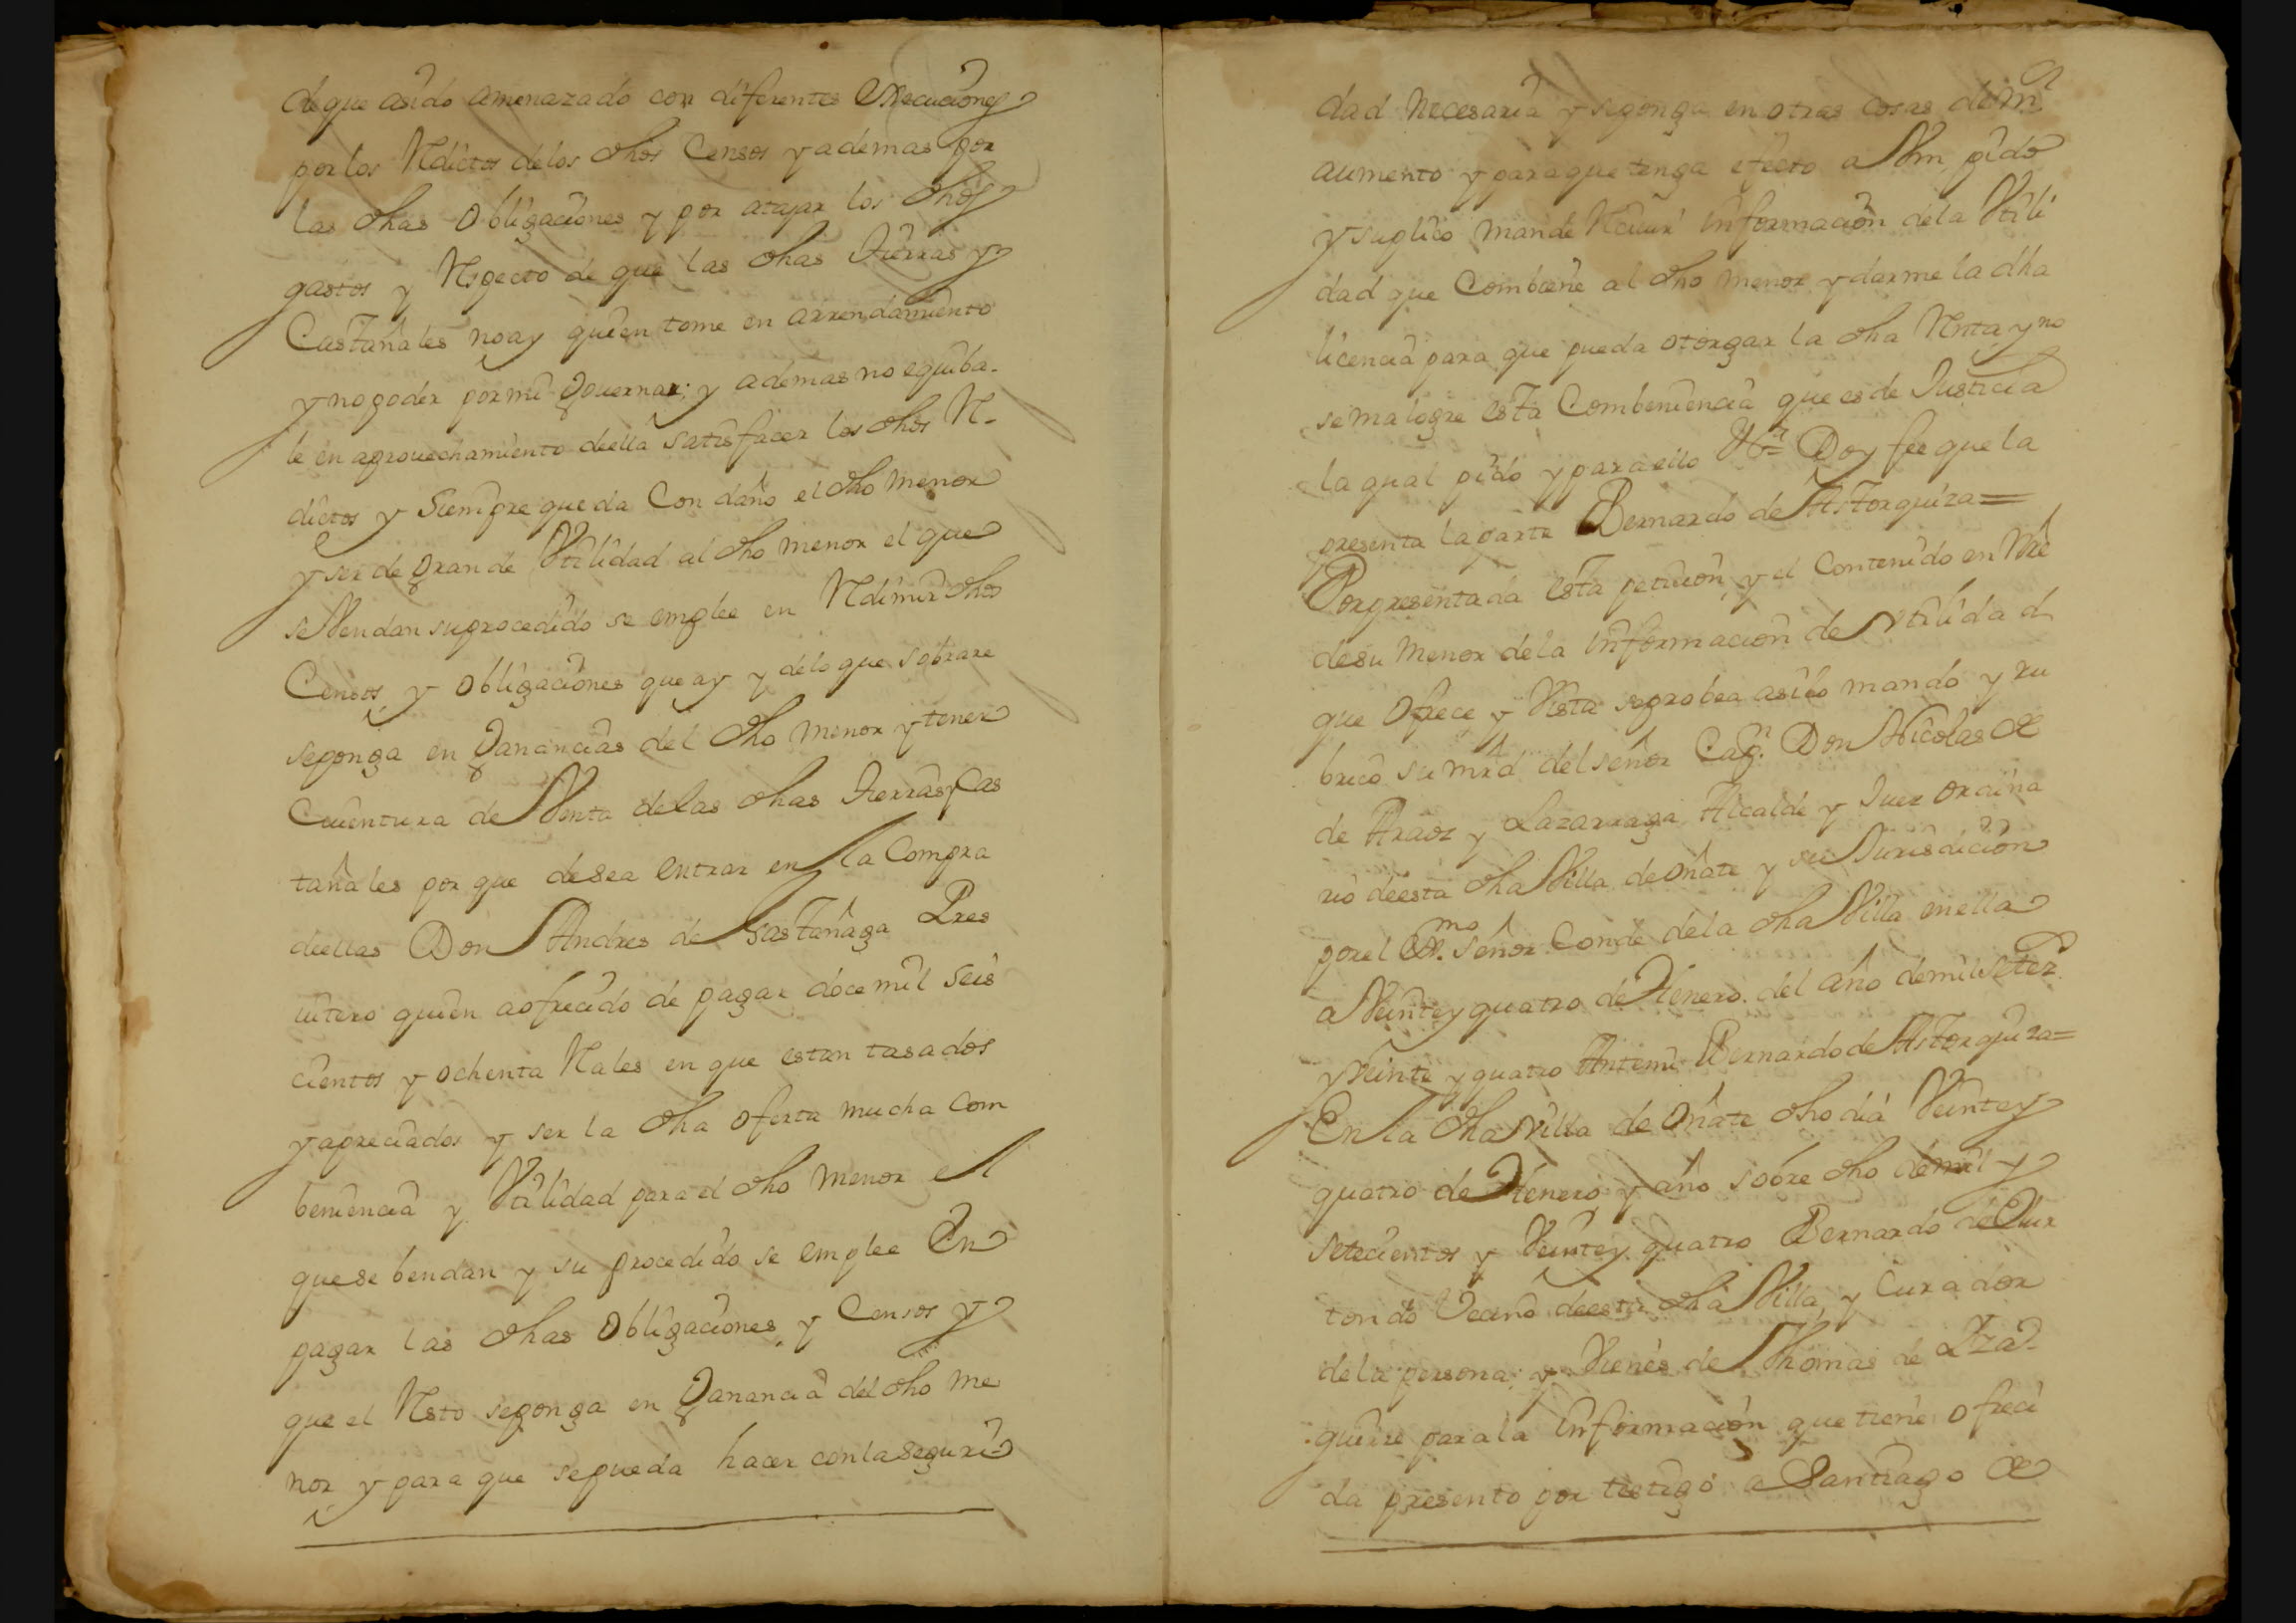 de que asido amenazado con diferentes execuciones
por los Reditos delos dhos Censos y ademas por
las dhas obligaciones y por atajar los dhos
gastos y Respecto de que las dhas Tierras y
Castañales noay quien tome en arrendamiento
y no poder por mi Governar; y ademas no equiba-
le en aprouechamiento deella satisfacer los dhos R-
dictos y Siempre queda Con daño el dho menor
y ser de Grande Vtilidad al dho menor el que
se Vendan su procedido se emplee en Redimir dhos
Censos, y obligaciones que ay y delo que sobrare
se ponga en Ganancias del dho menor y tener
Cuentura de Venta delas dhas Tierras y Cas
tañales por que desea entrar en la Compra
deellas Don Andres de Gastañaga Pres
uitero quien a ofrecido de pagar doce mil seis
cientos y ochenta Rales en que estan tasados
y apreciados y ser la dha oferta mucha Com
beniencia y Vtilidad para el dho menor el
que se bendan y su procedido se emplee En
pagar las dhas obligaciones, y Censos y
que el Resto se ponga en Ganancia del dho me
nor, y para que se pueda hacer con la seguri-
dad necesaria y se ponga en otras cosas de m
aumento y para que tenga efecto a Vm pido
y suplico mande Reciuir informacion dela Vtili
dad que Combiene al dho menor y darme la dha
licencia para que pueda otorgar la dha Venta y no
se malogre esta Combeniencia que es de Justicia
la qual pido y para ello Vª Doy fee que la
presenta la parte Bernardo de Astorquiza =
Por presentada esta peticion, y el Contenido en Nre
de su Menor de la informacion de vtilidad
que ofrece y Vista se probea asi lo mando y ru
brico su mrd del señor Capn Don Nicolas de
de Araoz y Lazarraga Alcalde y Juez ordina
rio deesta dha Villa de oñate y su Jurisdicion
por el Exmo. señor Conde dela dha Villa en ella
a Veinte y quatro de Henero del año de mil setez
y veinte y quatro Antemi Bernardo de Astorquiza =
En la dha villa de oñate dho dia Veinte y
quatro de Henero, y año sobre dho de mil y
setecientos y Veinte y quatro Bernardo de Vur
tondo Vecino deesta dha Villa, y Curador
dela persona, y Vienes de Thomas de Yza-
guirre para la informacion que tiene ofreci
da presento por testigo a Santiago de